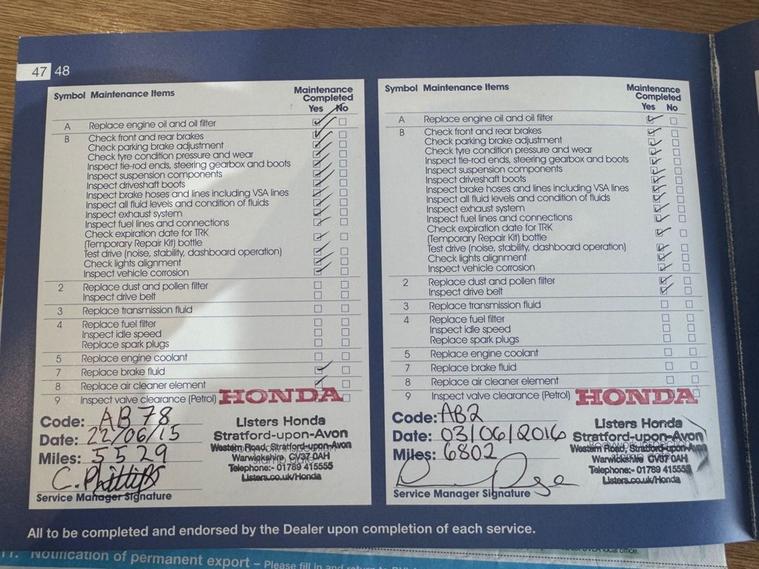 47 48
Symbol Maintenance Items Maintenance Completed
Yes No
A Replace engine oil and oil filter
B Check front and rear brakes
Check parking brake adjustment
Check tyre condition pressure and wear
Inspect tie-rod ends, steering gearbox and boots
Inspect suspension components
Inspect driveshaft boots
Inspect brake hoses and lines including VSA lines
Inspect all fluid levels and condition of fluids
Inspect exhaust system
Inspect fuel lines and connections
Check expiration date for TRK
(Temporary Repair Kit) bottle
Test drive (noise, stability, dashboard operation)
Check lights alignment
Inspect vehicle corrosion
2 Replace dust and pollen filter
Inspect drive belt
3 Replace transmission fluid
4 Replace fuel filter
Inspect idle speed
Replace spark plugs
5 Replace engine coolant
7 Replace brake fluid
8 Replace air cleaner element
9 Inspect valve clearance (Petrol)
HONDA
Code: AB78
Date: 22/06/15
Miles: 5529
C. Phillips
Service Manager Signature
Listers Honda
Stratford-upon-Avon
Western Road, Stratford-upon-Avon
Warwickshire CV37 0AH
Telephone:- 01789 415555
Listers.co.uk/Honda
Symbol Maintenance Items Maintenance Completed
Yes No
A Replace engine oil and oil filter
B Check front and rear brakes
Check parking brake adjustment
Check tyre condition pressure and wear
Inspect tie-rod ends, steering gearbox and boots
Inspect suspension components
Inspect driveshaft boots
Inspect brake hoses and lines including VSA lines
Inspect all fluid levels and condition of fluids
Inspect exhaust system
Inspect fuel lines and connections
Check expiration date for TRK
(Temporary Repair Kit) bottle
Test drive (noise, stability, dashboard operation)
Check lights alignment
Inspect vehicle corrosion
2 Replace dust and pollen filter
Inspect drive belt
3 Replace transmission fluid
4 Replace fuel filter
Inspect idle speed
Replace spark plugs
5 Replace engine coolant
7 Replace brake fluid
8 Replace air cleaner element
9 Inspect valve clearance (Petrol)
HONDA
Code: AB2
Date: 03/06/2016
Miles: 6802
Service Manager Signature
Listers Honda
Stratford-upon-Avon
Western Road, Stratford-upon-Avon
Warwickshire CV37 0AH
Telephone:- 01789 415555
Listers.co.uk/Honda
All to be completed and endorsed by the Dealer upon completion of each service.
local office.
11. Notification of permanent export – Please fill in and return to